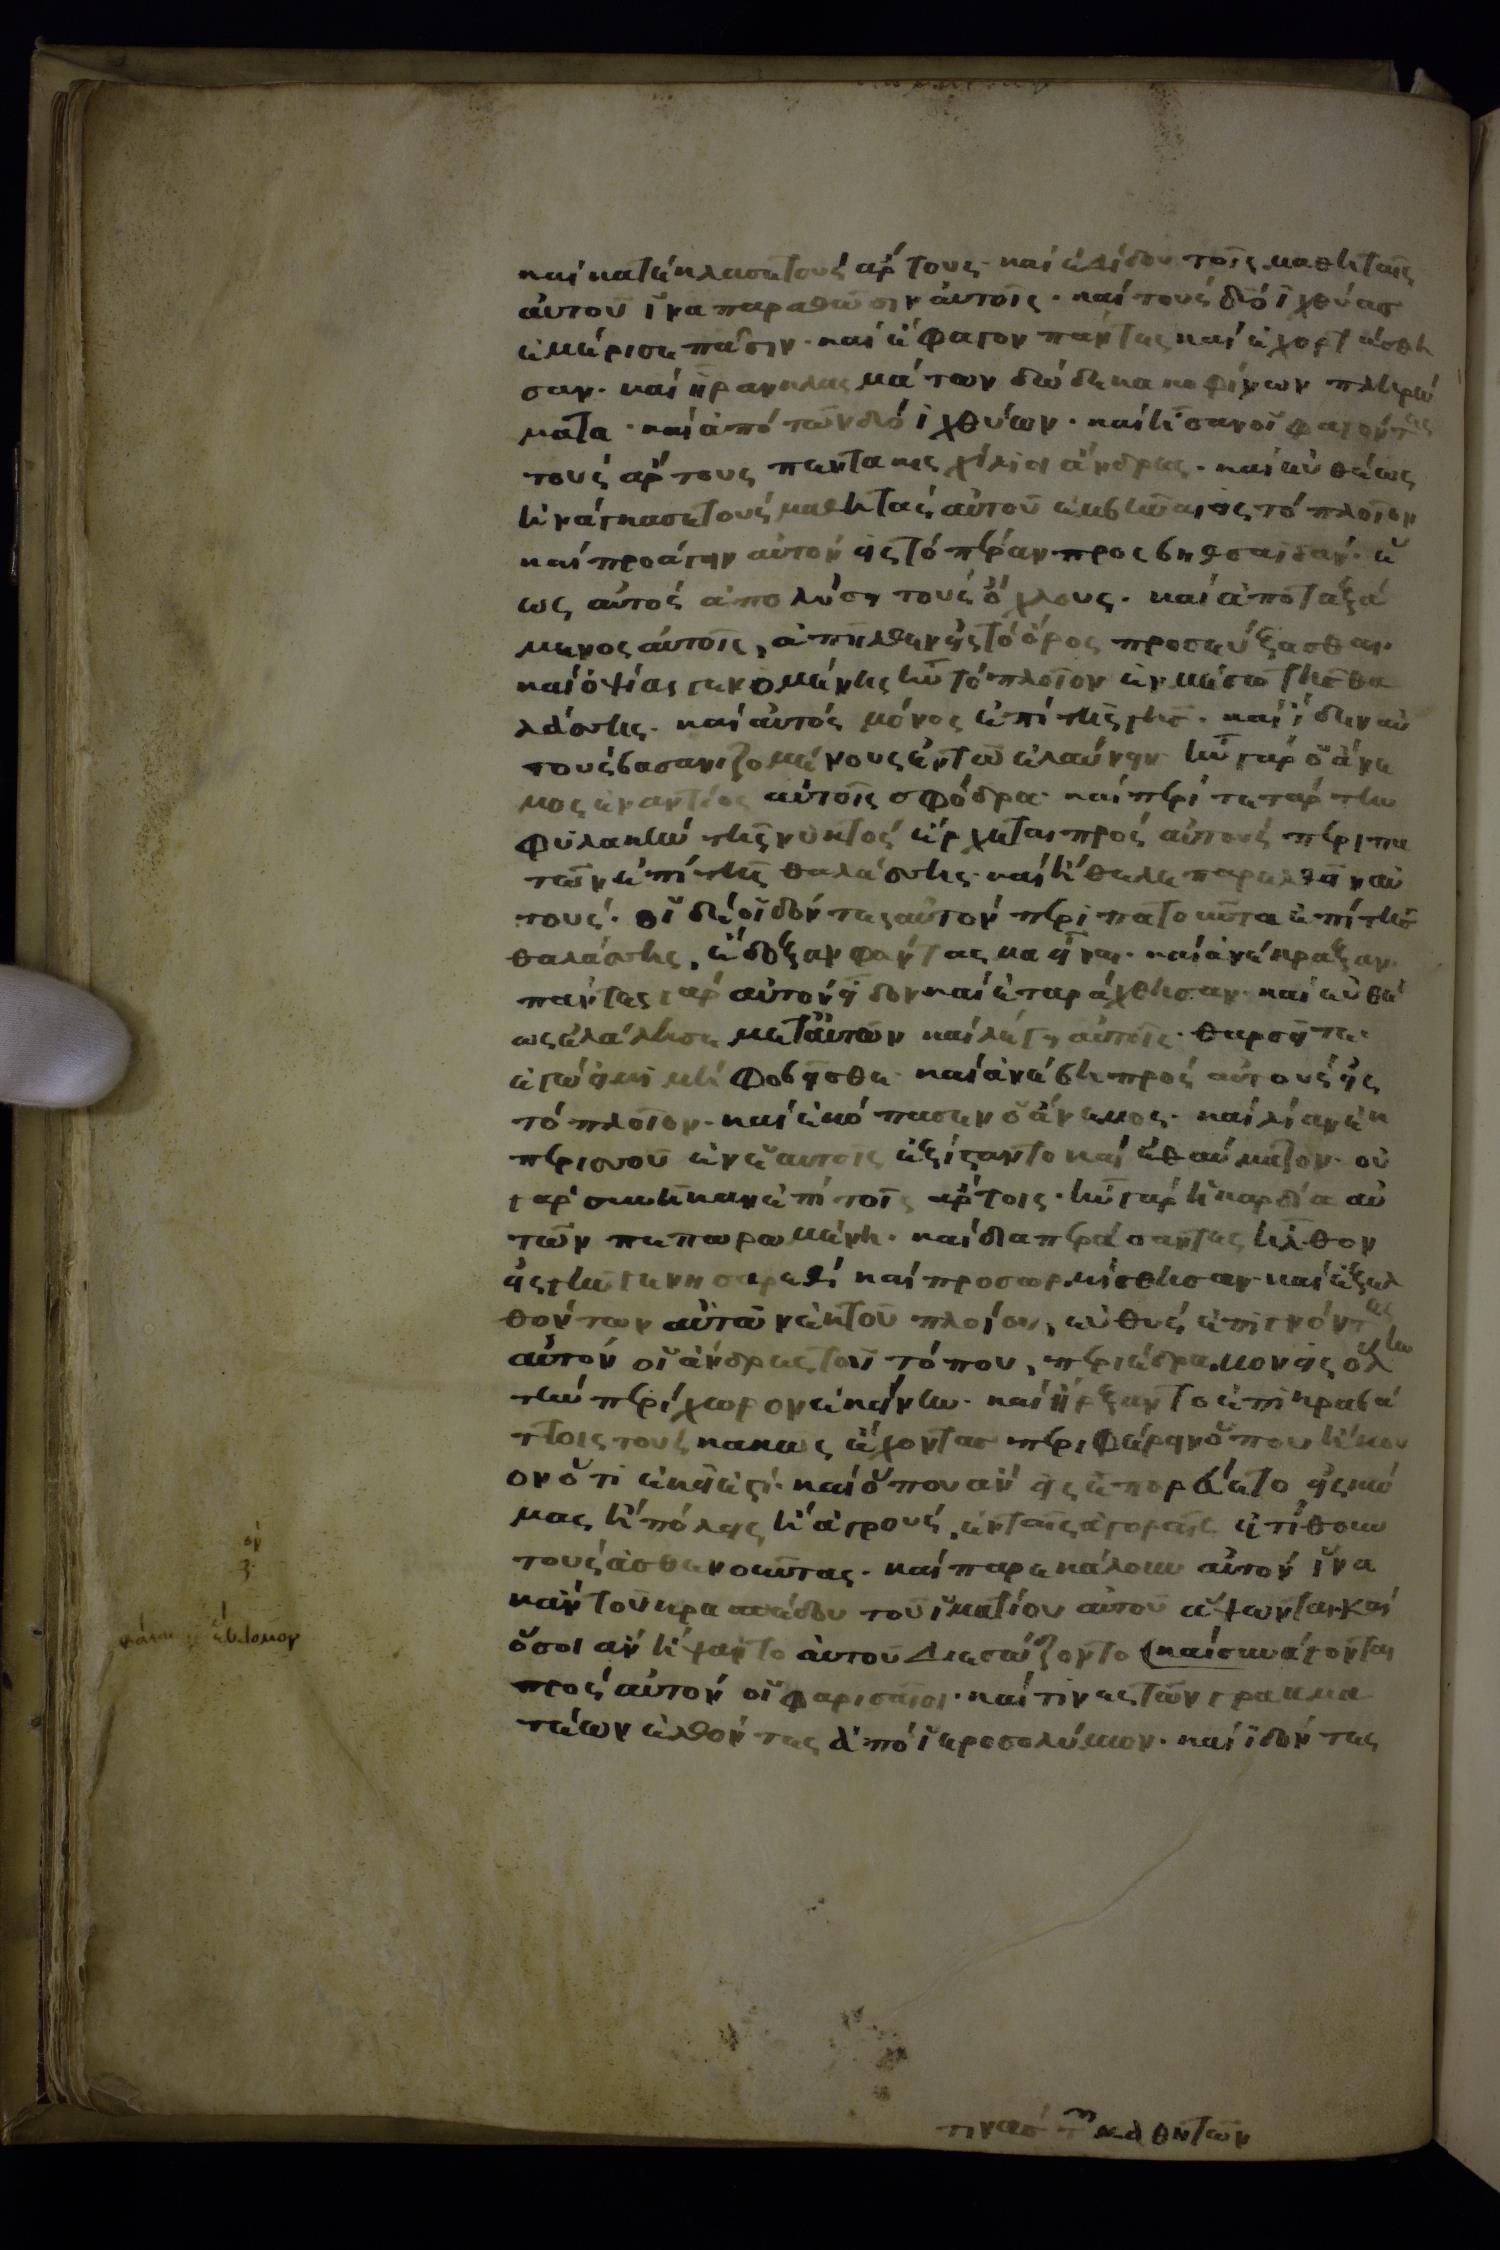 καὶ κατέκλασε τοὺς ἄρτους· καὶ ἐδίδου τοῖς μαθηταῖς
αὐτοῦ ἵνα παραθῶσιν αὐτοῖς· καὶ τοὺς δύο ἰχθύας
ἐμέρισε πᾶσιν· καὶ ἔφαγον πάντες καὶ ἐχορτάσθη
σαν· καὶ ἦραν κλασμάτων δώδεκα κοφίνων πληρώ
ματα· καὶ ἀπὸ τῶν δύο ἰχθύων· καὶ ἦσαν οἱ φαγόντες
τοὺς ἄρτους πεντακις χίλιοι ἄνδρες· καὶ εὐθέως
ἠνάγκασε τοὺς μαθητὰς αὐτοῦ ἐμβῆναι εἰς τὸ πλοῖον
καὶ προάγειν αὐτὸν εἰς τὸ πέραν προς βηθσαϊδάν· ἕ
ως αὐτὸς ἀπολύσῃ τοὺς ὄχλους· καὶ ἀποταξά
μενος αὐτοῖς, ἀπῆλθεν εἰς τὸ ὄρος προσεύξασθαι·
καὶ ὀψίας γενομένης ἦν τὸ πλοῖον ἐν μέσω τῆς θα
λάσσης· καὶ αὐτὸς μόνος ἐπὶ τῆς γῆς· καὶ ἴδεν αὐ
τοὺς βασανιζομένους ἐν τῶ ἐλαύνειν ἦν γὰρ ὁ ἄνε
μος ἐναντίος αὐτοῖς σφόδρα· καὶ περὶ τετάρτην
φυλακὴν τῆς νυκτὸς ἔρχεται πρὸς αὐτοὺς περιπα
τῶν ἐπὶ τῆς θαλάσσης· καὶ ἤθελε παρελθεῖν αὐ
τούς· οἱ δὲ οἰδόντες αὐτὸν περιπατοῦντα ἐπὶ τῆς
θαλάσσης, ἔδοξαν φάντασμα εἶναι· καὶ ἀνέκραξαν·
πάντες γὰρ αὐτὸν εἶδον καὶ ἐταράχθησαν· καὶ εὐθέ
ως ἐλάλησε μετ' αὐτῶν καὶ λέγει αὐτοῖς· θαρσεῖτε·
ἐγώ εἰμι μὴ φοβεῖσθε· καὶ ἀνέβη πρὸς αὐτοὺς εἰς
τὸ πλοῖον· καὶ ἐκόπασεν ὁ ἄνεμος· καὶ λίαν ἐκ
περισσοῦ ἐν ἑαυτοῖς ἐξίσταντο καὶ ἐθαύμαζον· οὐ
γὰρ συνῆκαν ἐπὶ τοῖς ἄρτοις· ἦν γὰρ ἡ καρδία αὐ
τῶν πεπωρωμένη· καὶ διαπεράσαντες ἦλθον
εἰς γῆν γενησαρὲθ καὶ προσωρμίσθησαν· καὶ ἐξελ
θόντων αὐτῶν ἐκ τοῦ πλοίου, εὐθὺς ἐπιγνόντες
αὐτὸν οἱ ἄνδρες τοῦ τόπου, περιέδραμον εἰς ὅλην
τὴν περίχωρον ἐκείνην· καὶ ἤρξαντο ἐπὶ κραβά
ττοις τοὺς κακως ἔχοντας περιφέρειν ὅπου ἤκου
ον ὅτι ἐκεῖ ἐστί· καὶ ὅπου ἂν εἰσεπορεύετο εἰς κώ
μας ἢ πόλεις ἢ ἀγρούς, ἐν ταῖς ἀγοραῖς ἐτίθουν
τοὺς ἀσθενοῦντας· καὶ παρεκάλουν αὐτὸν ἵνα
κἂν τοῦ κρασπέδου τοῦ ἱματίου αὐτοῦ ἅψωνται· Καὶ
ὅσοι ἂν ἥψαντο αὐτοῦ διεσώζοντο καὶ συνάγονται
πρὸς αὐτὸν οἱ φαρισαῖοι· καί τινες τῶν γραμμα
τέων ἐλθόντες ἀπὸ ἱεροσολύμων· καὶ ἰδόντες
τινὰς τῶν μαθητῶν